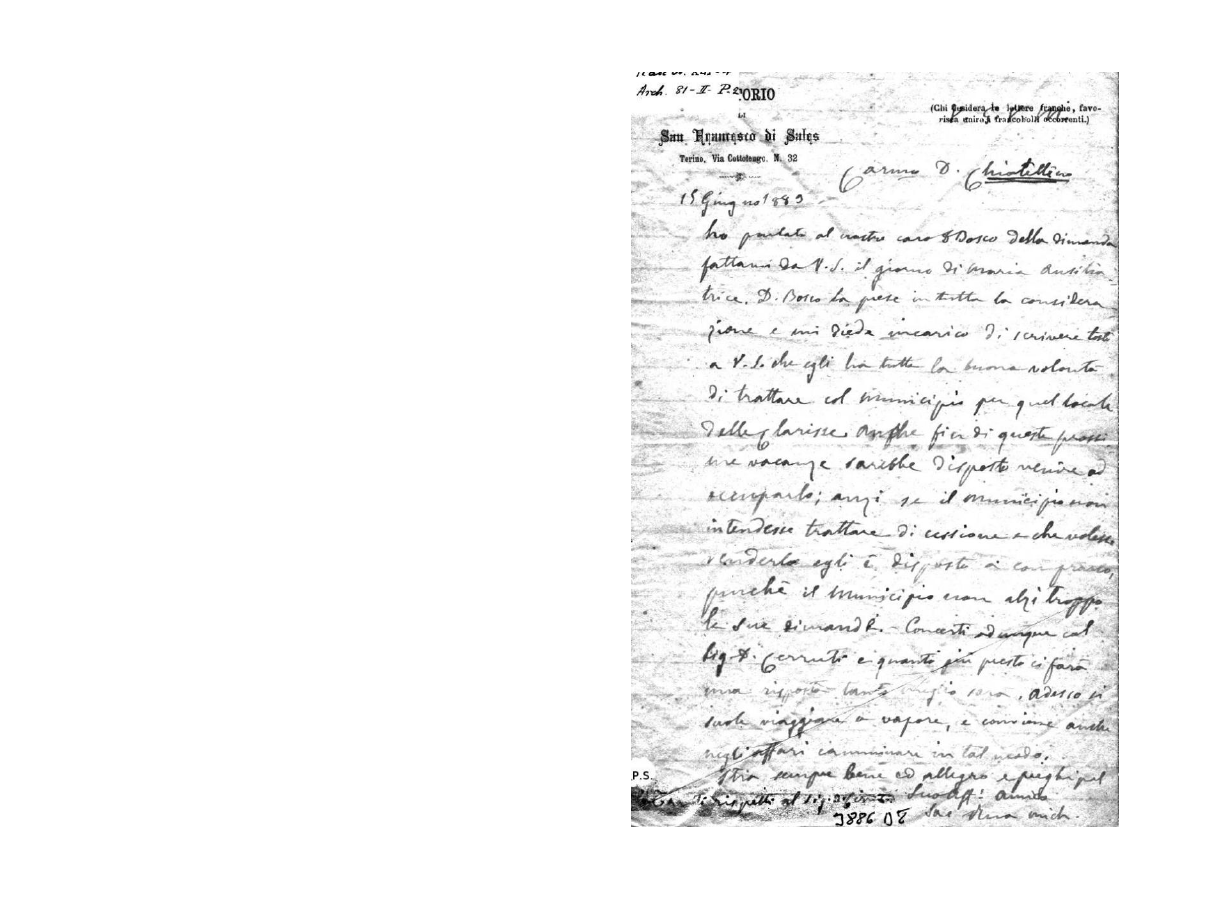 Arch. 81-II- P.2
ORIO
di
San Francesco di Sales
Torino, Via Cottolengo. N. 32
(Chi desidera le lettere franche, favo-
risca unire i francobolli occorrenti.)
Carmo D. Chiatellino
15 Giugno 1883
ho parlato al nostro caro D Bosco della dimanda
fattami da V.S. il giorno di Maria Ausilia-
trice. D. Bosco la prese in tutta la considera
zione e mi diede incarico di scrivere tosto
a V.S. che egli ha tutta la buona volontà
di trattare col Municipio per quel locale
delle Clarisse. Anche fin di queste prossi
me vacanze sarebbe disposto venire ad
occuparlo; anzi se il Municipio non
intendesse trattare di cessione e che volesse
venderlo egli è disposto a comprarlo,
purchè il Municipio non alzi troppo
le sue dimande. Concerti adunque col
Sig. D. Cerruti e quanto più presto ci farà
una risposta tanto meglio sarà, adesso si
suole viaggiare a vapore, e conviene anche
negli affari camminare in tal modo.
Stia sempre bene ed allegro e preghi pel
P.S.
Tanti rispetti al Sig. Suo Aff: amico
Sac. Rua Mich.
J886 D8